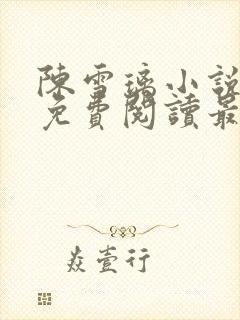 陳雪璃小說
免費閱讀最
焱壹行